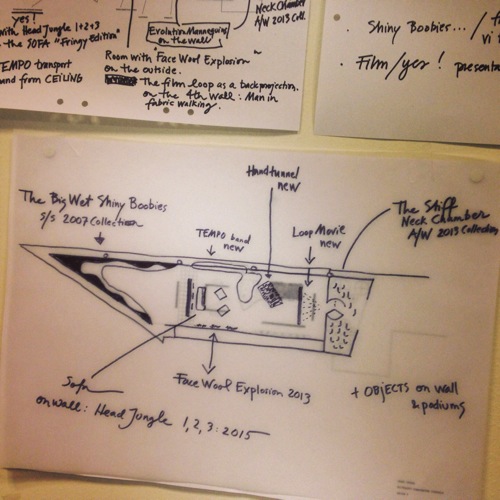 yes!
with Head Jungle 1+2+3
the SOFA "Fringy Edition"
TEMPO transport
band from CEILING
Evolution Mannequins
on the wall
Room with "Face Wool Explosion"
on the outside.
The film loop as a backprojection
on the 4th wall: Man in
fabric walking.
Neck Chamber
A/W 2013 Coll.
• Shiny Boobies... /
• Film / yes! presenta
The Big Wet Shiny Boobies
S/S 2007 Collection
TEMPO band
new
Handtunnel
new
Loop Movie
new
The Stiff
Neck Chamber
A/W 2013 Collection
Sofa
on wall: Head Jungle 1, 2, 3: 2015
Face Wool Explosion 2013
+ OBJECTS on wall
& podiums